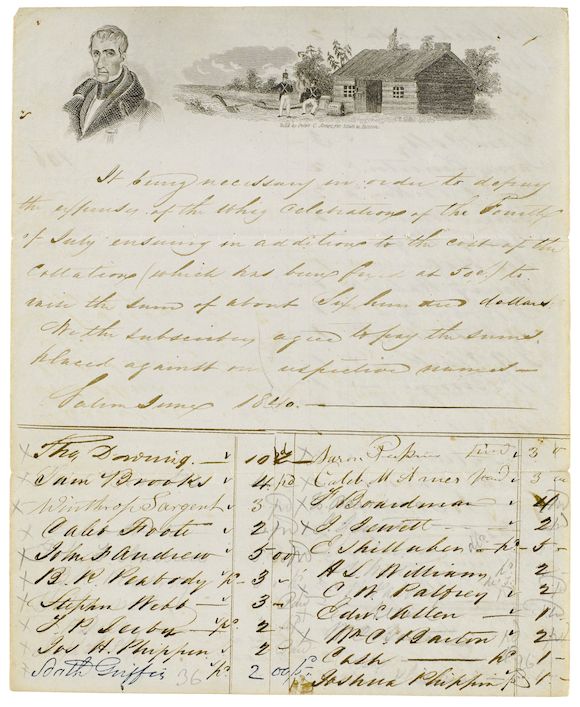 It being necessary in order to defray
the expenses of the Whig Celebration of the Fourth
of July ensuing in addition to the cost of the
collation (which has been fixed at 50 cts) to
raise the sum of about Six hundred dollars
We the subscribers agree to pay the sums
placed against our respective names—
Salem June 1840.
Thos Downing 10
Sam Brooks 4 pd
Winthrop Sargent 3
Caleb Foote 2
John F Andrew 5 00
B. R. Peabody 3
Stephen Webb 3
2
Jos H. Phippen 2
Griffin 36 2 00
Aaron Perkins 3
Caleb M Ames 3
Boardman 4
J. Jewett 2
E. Shillaber 5
H. L. Williams 2
C W Palfrey 2
Edwd Allen 1
Wm C. Barton 2
Cash 1
Joshua Phippen 1